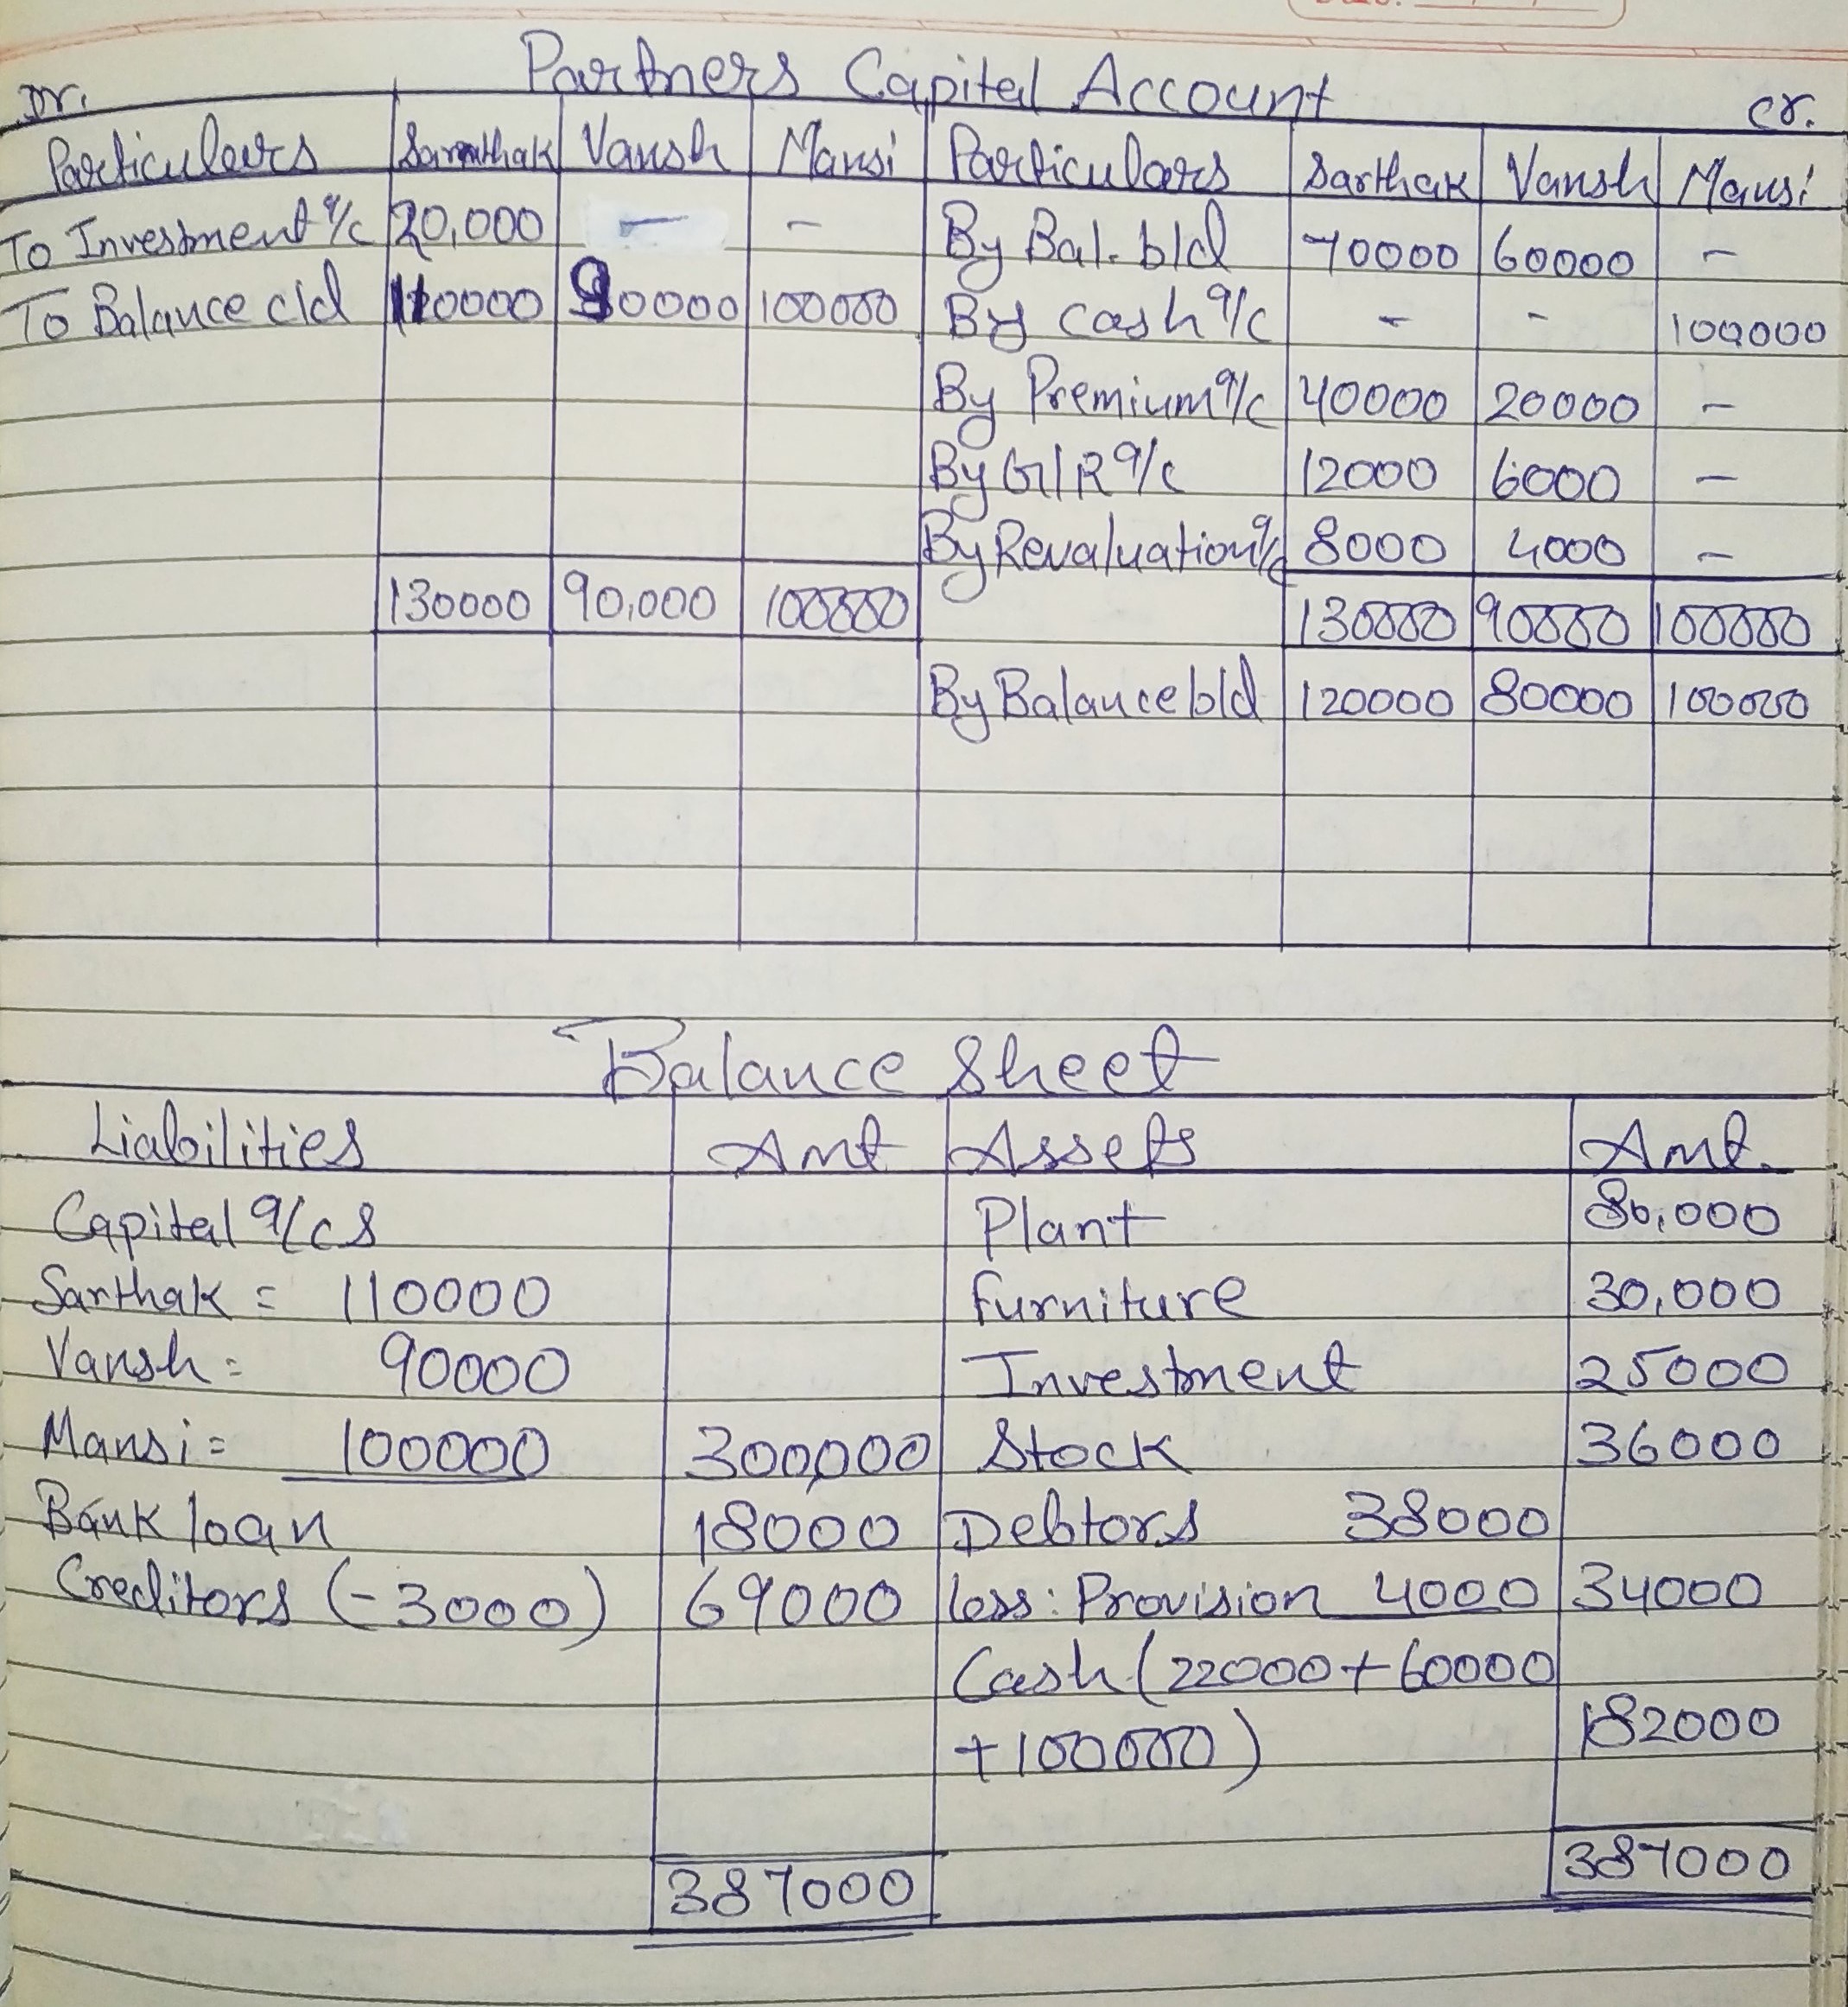 Partners Capital Account
Dr. Cr.
Particulars Sarthak Vansh Mansi Particulars Sarthak Vansh Mansi
To Investment a/c 20,000 — — By Bal. b/d 70000 60000 —
To Balance c/d 110000 90000 100000 By Cash a/c - - 100000
By Premium a/c 40000 20000 —
By G/R a/c 12000 6000 —
By Revaluation a/c 8000 4000 —
130000 90,000 100000 130000 90000 100000
By Balance b/d 120000 80000 100000
Balance Sheet
Liabilities Amt Assets Amt.
Capital a/cs Plant 80,000
Sarthak = 110000 furniture 30,000
Vansh = 90000 Investment 25000
Mansi = 100000 300,000 Stock 36000
Bank loan 18000 Debtors 38000
Creditors (-3000) 69000 less: Provision 4000 34000
Cash (22000+60000
+100000) 182000
387000 387000